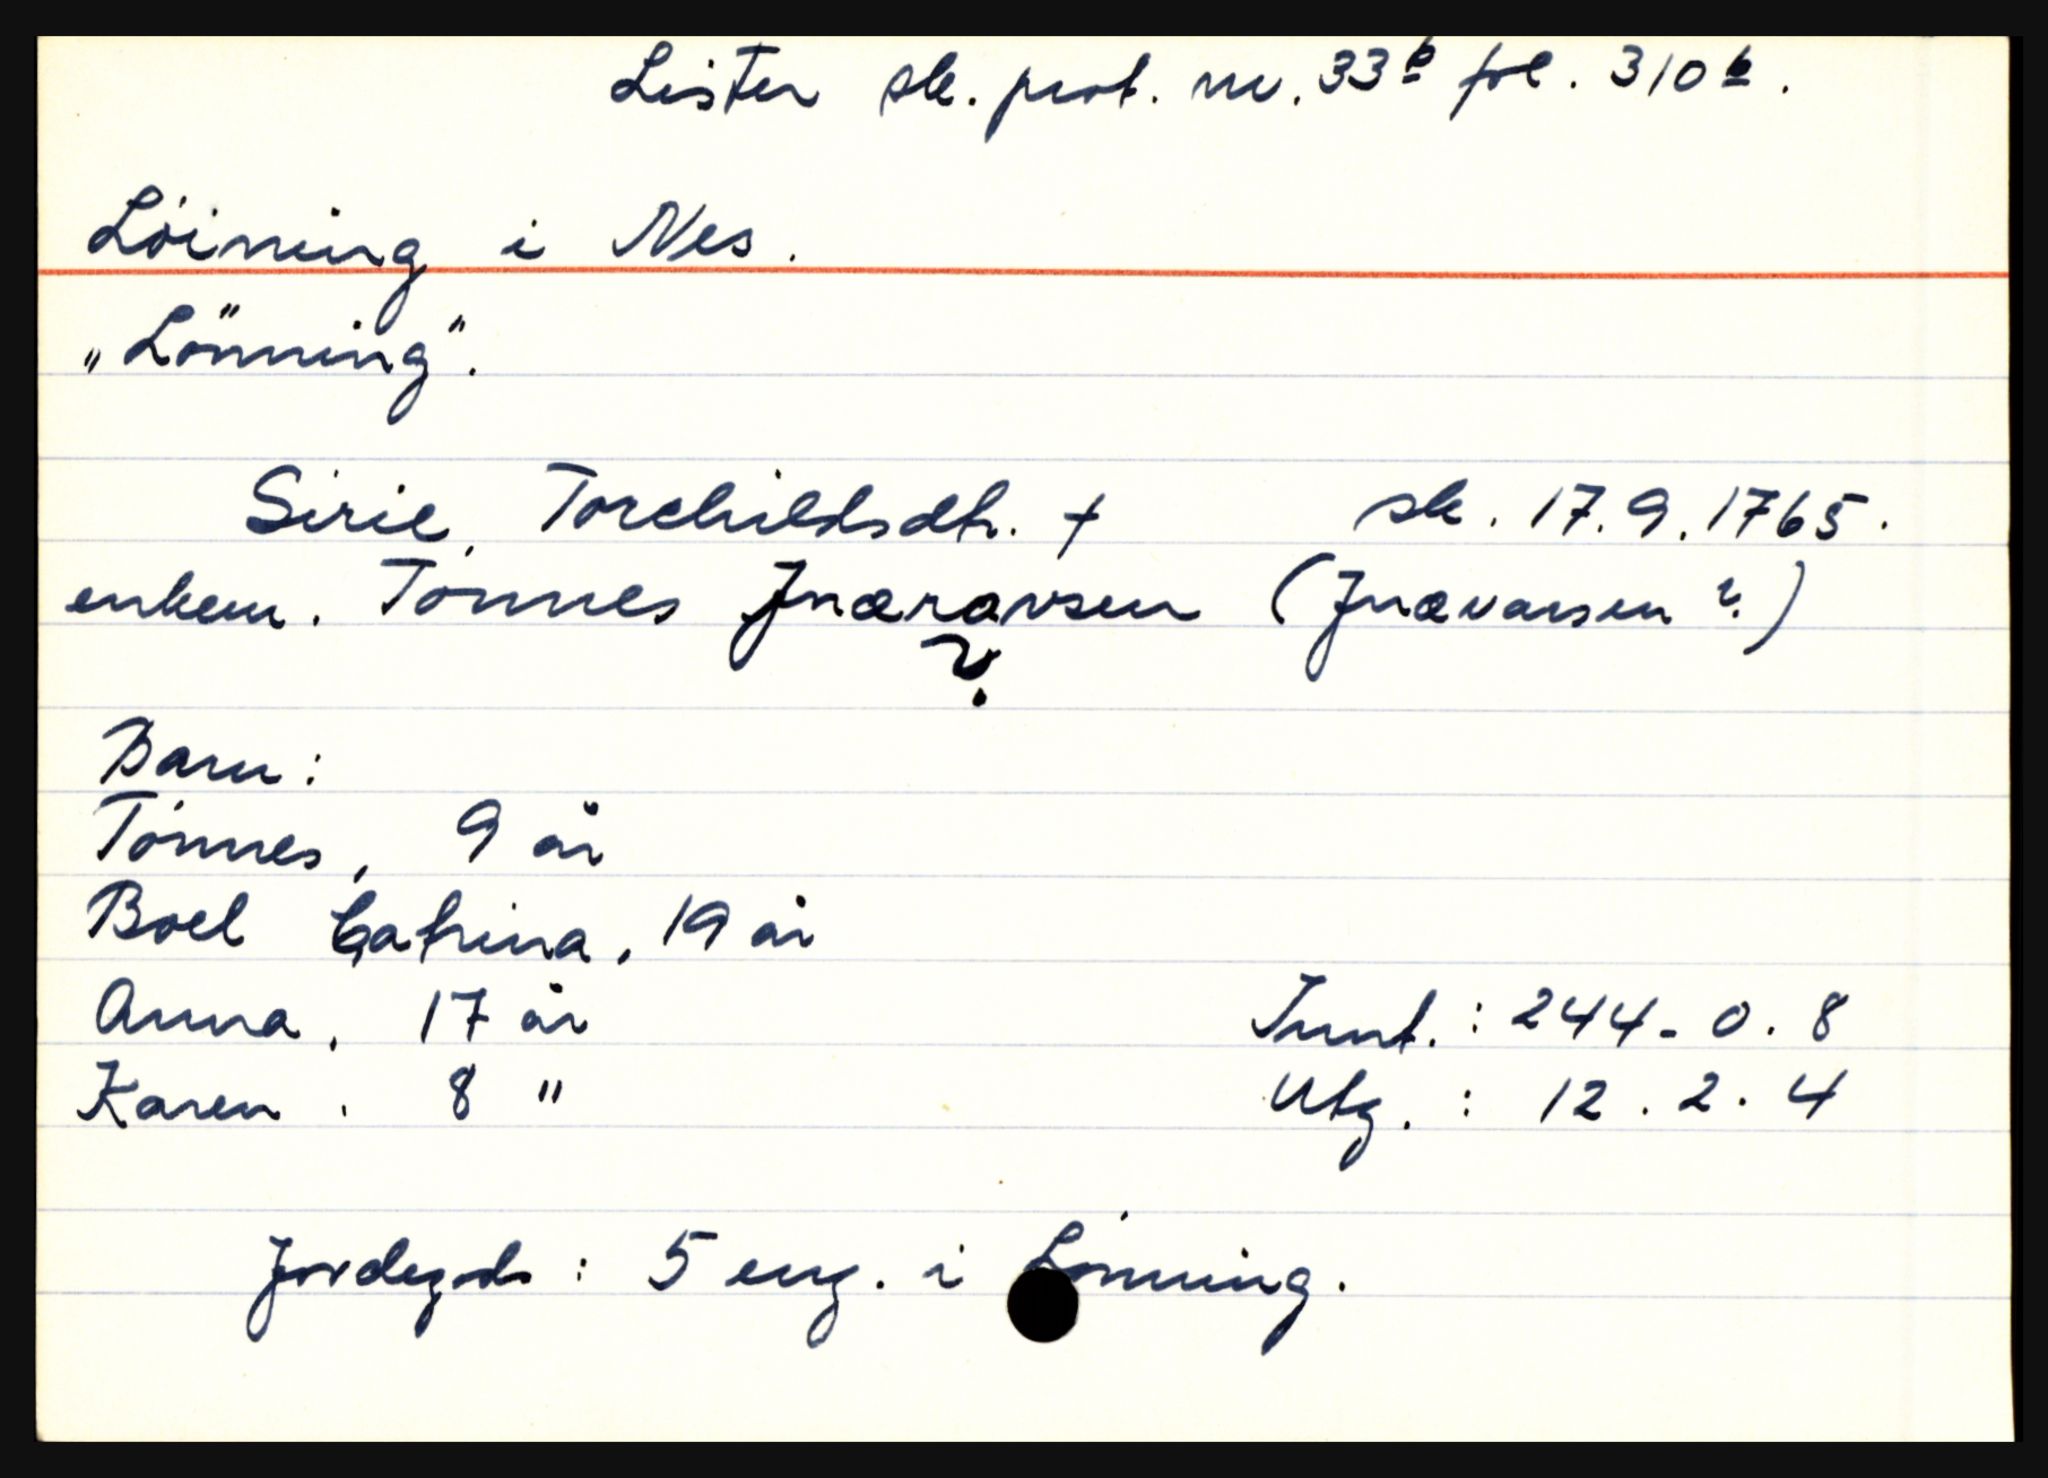 Lister sk. prot. nr. 33b fol. 310b.
Löining i Nes.
„Lönning".
Sirie Torchildsdtr. † sk. 17.9.1765.
enkem. Tónnes Jnæravsen (Jnævarsen ?)
?
Barn:
Tónnes, 9 år
Boel Catrina, 19 år
Anna, 17 år Innt. : 244-0.8
Karen. 8 " Utg. : 12.2.4
Jordegods : 5 eng. i Lónning.